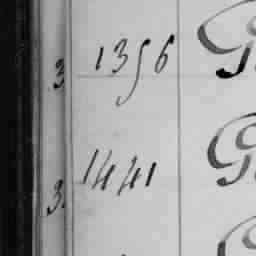 3 1356 G
3. 1441 G